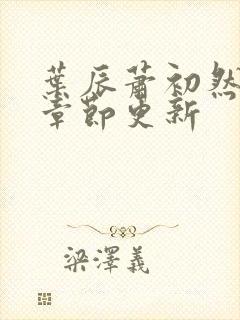 葉辰蕭初然
章節更新
梁澤義